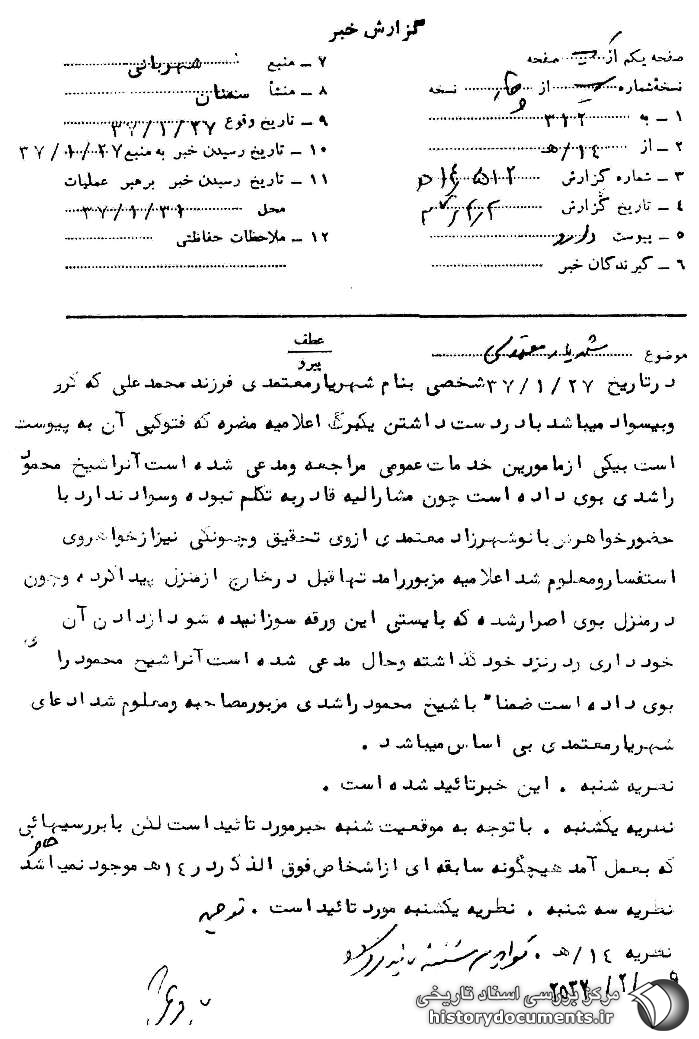 گزارش خبر
صفحه یکم از یک صفحه
نسخه شماره یک از چهار نسخه
۱ ـ به ۳۱۲
۲ ـ از ۱۴/هـ
۳ ـ شماره گزارش
۴ ـ تاریخ گزارش
۵ ـ پیوست دارد
۶ ـ گیرندگان خبر
۷ ـ منبع شهربانی
۸ ـ منشأ سمنان
۹ ـ تاریخ وقوع ۳۷/۱/۲۷
۱۰ ـ تاریخ رسیدن خبر به منبع ۳۷/۱۰/۲۷
۱۱ ـ تاریخ رسیدن خبر برهبر عملیات
محل ۳۷/۱/۳۱
۱۲ ـ ملاحظات حفاظتی
موضوع شهریار معتمدی
عطف
پیرو
درتاریخ ۳۷/۱/۲۷ شخصی بنام شهریارمعتمدی فرزند محمدعلی که کرر
وبیسواد میباشد بادردست داشتن یکبرگ اعلامیه مضره که فتوکپی آن به پیوست
است بیکی ازمامورین خدمات عمومی مراجعه ومدعی شده است آنراشیخ محمود
راشدی بوی داده است چون مشارالیه قادربه تکلم نبوده وسواد ندارد با
حضورخواهرش بانوشهرزاد معتمدی ازوی تحقیق وچگونگی نیزازخواهروی
استفسارومعلوم شد اعلامیه مزبوررامدتهاقبل درخارج ازمنزل پیداکرده وچون
درمنزل بوی اصرارشده که بایستی این ورقه سوزانیده شود ازدادن آن
خودداری ودرنزد خودگذاشته وحال مدعی شده است آنراشیخ محمود را
بوی داده است ضمناً باشیخ محمود راشدی مزبورمصاحبه ومعلوم شد ادعای
شهریارمعتمدی بی اساس میباشد .
نظریه شنبه . این خبرتائید شده است .
نظریه یکشنبه . باتوجه به موقعیت شنبه خبرمورد تائید است لکن بابررسیهائی
که بعمل آمد هیچگونه سابقه ای ازاشخاص فوق الذکردر ۱۴هـ موجود نمیباشد
نظریه سه شنبه . نظریه یکشنبه مورد تائید است . توحید
نظریه ۱۴/هـ .
مرکز بررسی اسناد تاریخی
historydocuments.ir